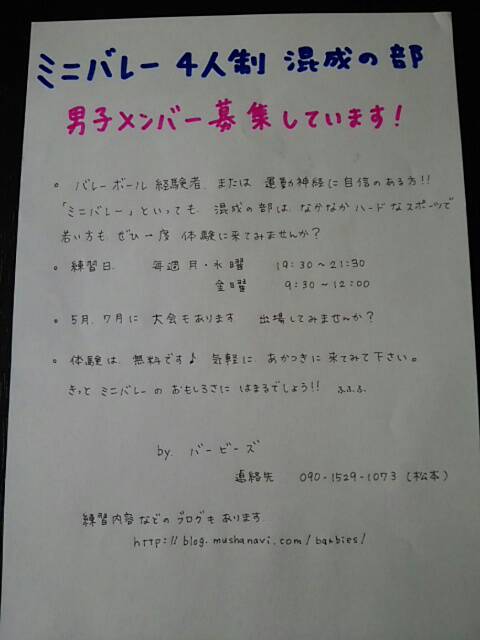 ミニバレー 4人制 混成の部
男子メンバー募集しています!
。バレーボール経験者、または 運動神経に自信のある方!!
「ミニバレー」といっても、混成の部は、なかなかハードなスポーツで
若い方も、ぜひ一度、体験に来てみませんか?
。練習日、 毎週 月・水曜 19:30~21:30
金曜 9:30~12:00
。5月、7月に 大会もあります 出場してみませんか?
。体験は、無料です♪ 気軽に、あかつきに来てみて下さい。
きっと ミニバレーの おもしろさに はまるでしょう!! ふふふ
by. バービーズ
連絡先 090-1529-1073 (松本)
練習内容などの ブログも あります
http://blog.mushanavi.com/barbies/